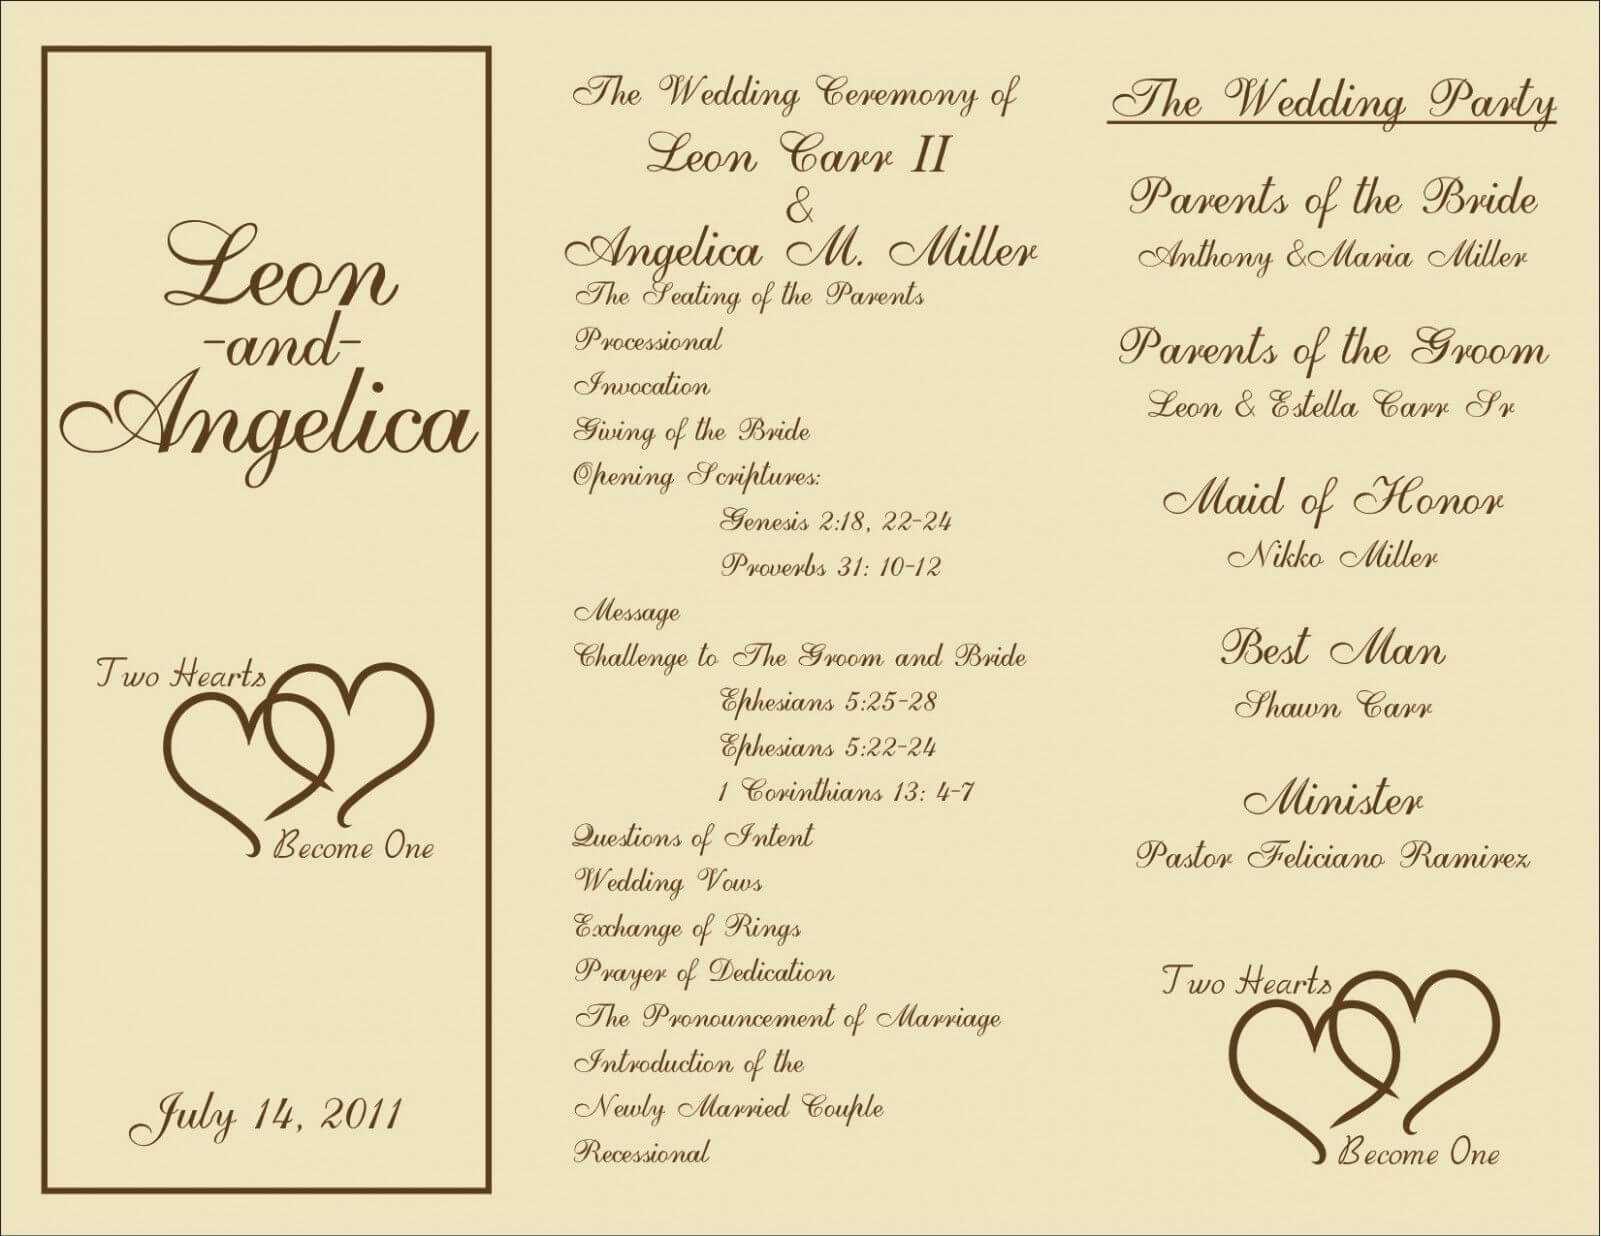 Leon
-and-
Angelica
Two Hearts
Become One
July 14, 2011
The Wedding Ceremony of
Leon Carr II
&
Angelica M. Miller
The Seating of the Parents
Processional
Invocation
Giving of the Bride
Opening Scriptures:
Genesis 2:18, 22-24
Proverbs 31: 10-12
Message
Challenge to The Groom and Bride
Ephesians 5:25-28
Ephesians 5:22-24
1 Corinthians 13: 4-7
Questions of Intent
Wedding Vows
Exchange of Rings
Prayer of Dedication
The Pronouncement of Marriage
Introduction of the
Newly Married Couple
Recessional
The Wedding Party
Parents of the Bride
Anthony &Maria Miller
Parents of the Groom
Leon & Estella Carr Sr
Maid of Honor
Nikko Miller
Best Man
Shawn Carr
Minister
Pastor Feliciano Ramirez
Two Hearts
Become One